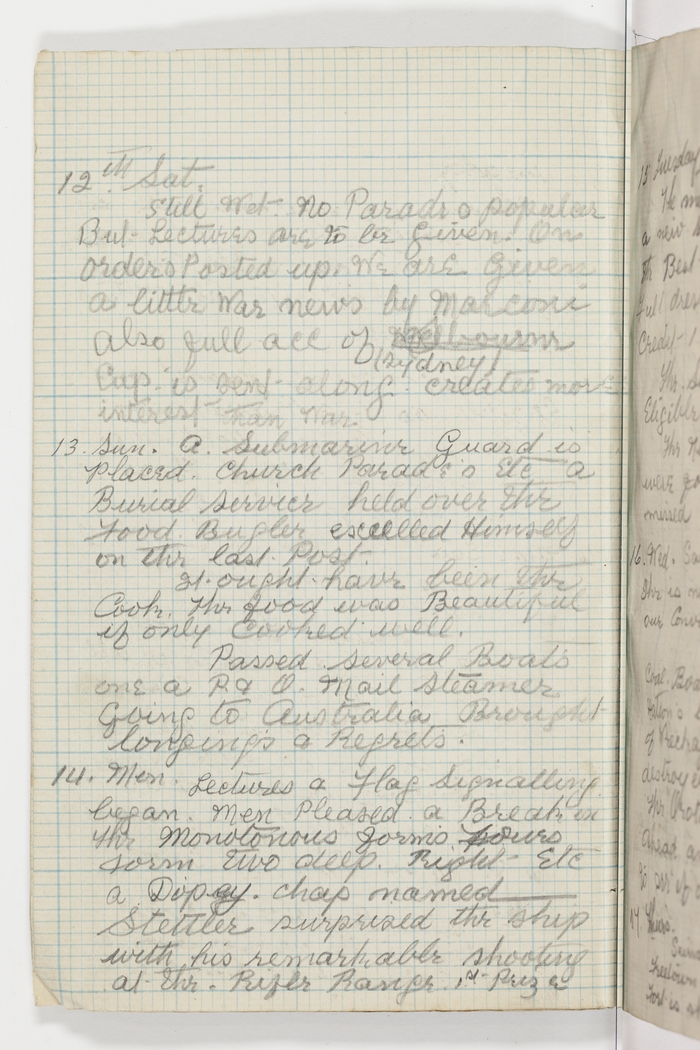 12th Sat.
Still Wet. No Parades popular
But Lectures are to be Given. On
orders Posted up. We are Given
a little War news by Marconi
also full acc of Melbourne
(Sydney)
Cup is sent along. created more
interest than War
13. Sun. A Submarine Guard is
Placed. Church Parades Etc a
Burial Service held over the
Food. Bugler excelled Himself
on the last Post.
It ought have been the
Cook. The food was Beautiful
if only Cooked well.
Passed Several Boats
one a P & O. Mail Steamer
Going to Australia Brought
longings a Regrets.
14. Mon. Lectures a Flag Signalling
began. Men Pleased a Break in
the Monotonous forms fours
form two deep. Right Etc
a Dopey chap named
Stettler surprised the ship
with his remarkable shooting
at the Rifle Range. 1st Prize
15 Tuesday
a new
Best
full dres
Credit
Eligible
were
missed
16. Wed.
The is
our Conv
Coal Boa
destroye
ahead
17. Thurs.
Freetown